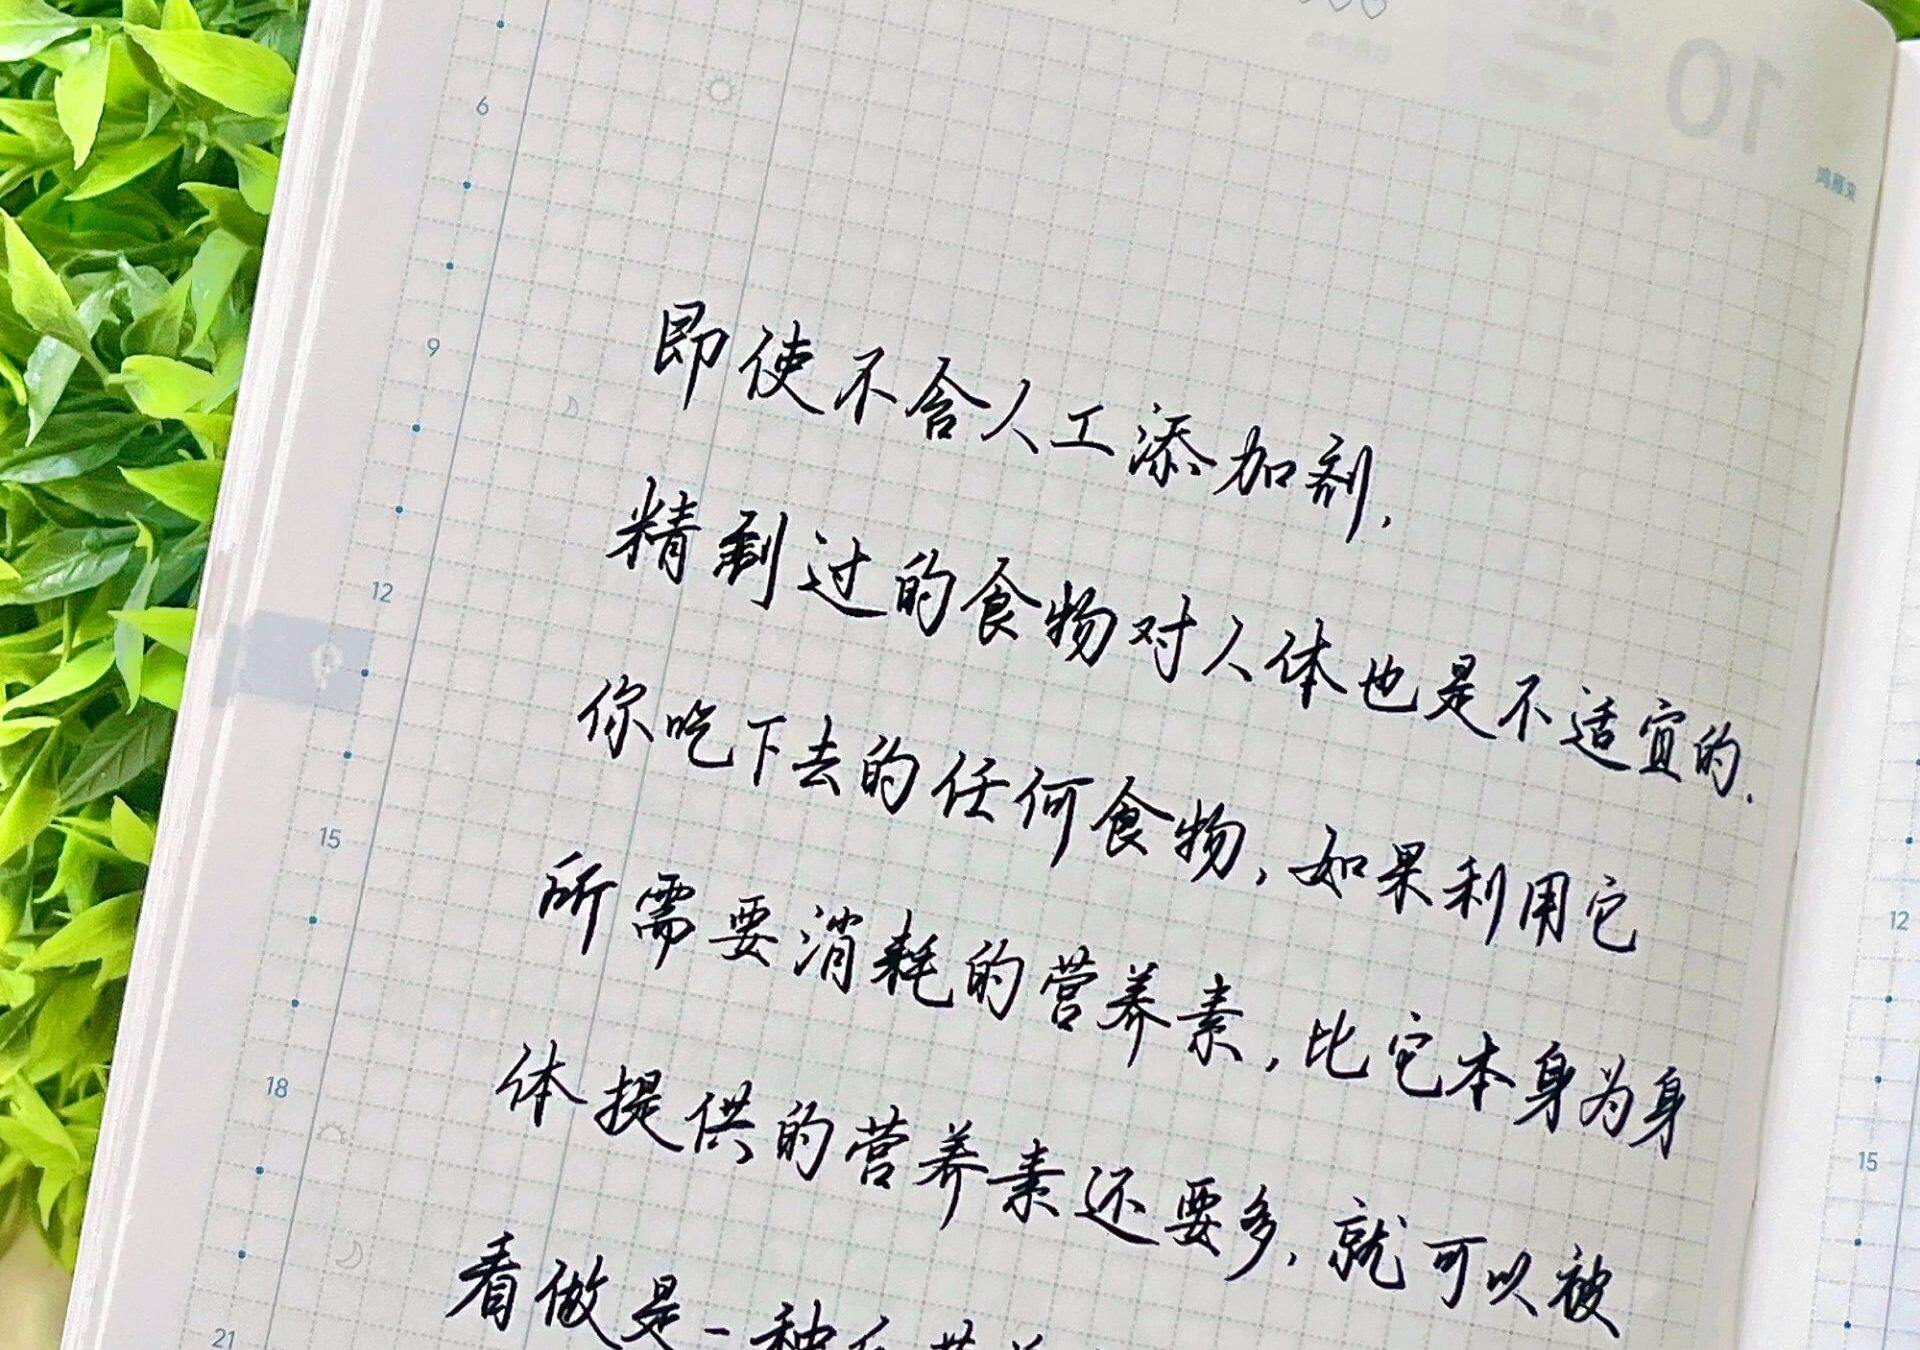 10
鸿雁来
6
9
12
15
18
21
即使不含人工添加剂.
精制过的食物对人体也是不适宜的.
你吃下去的任何食物,如果利用它
所需要消耗的营养素,比它本身为身
体提供的营养素还要多,就可以被
看做是一种
12
15